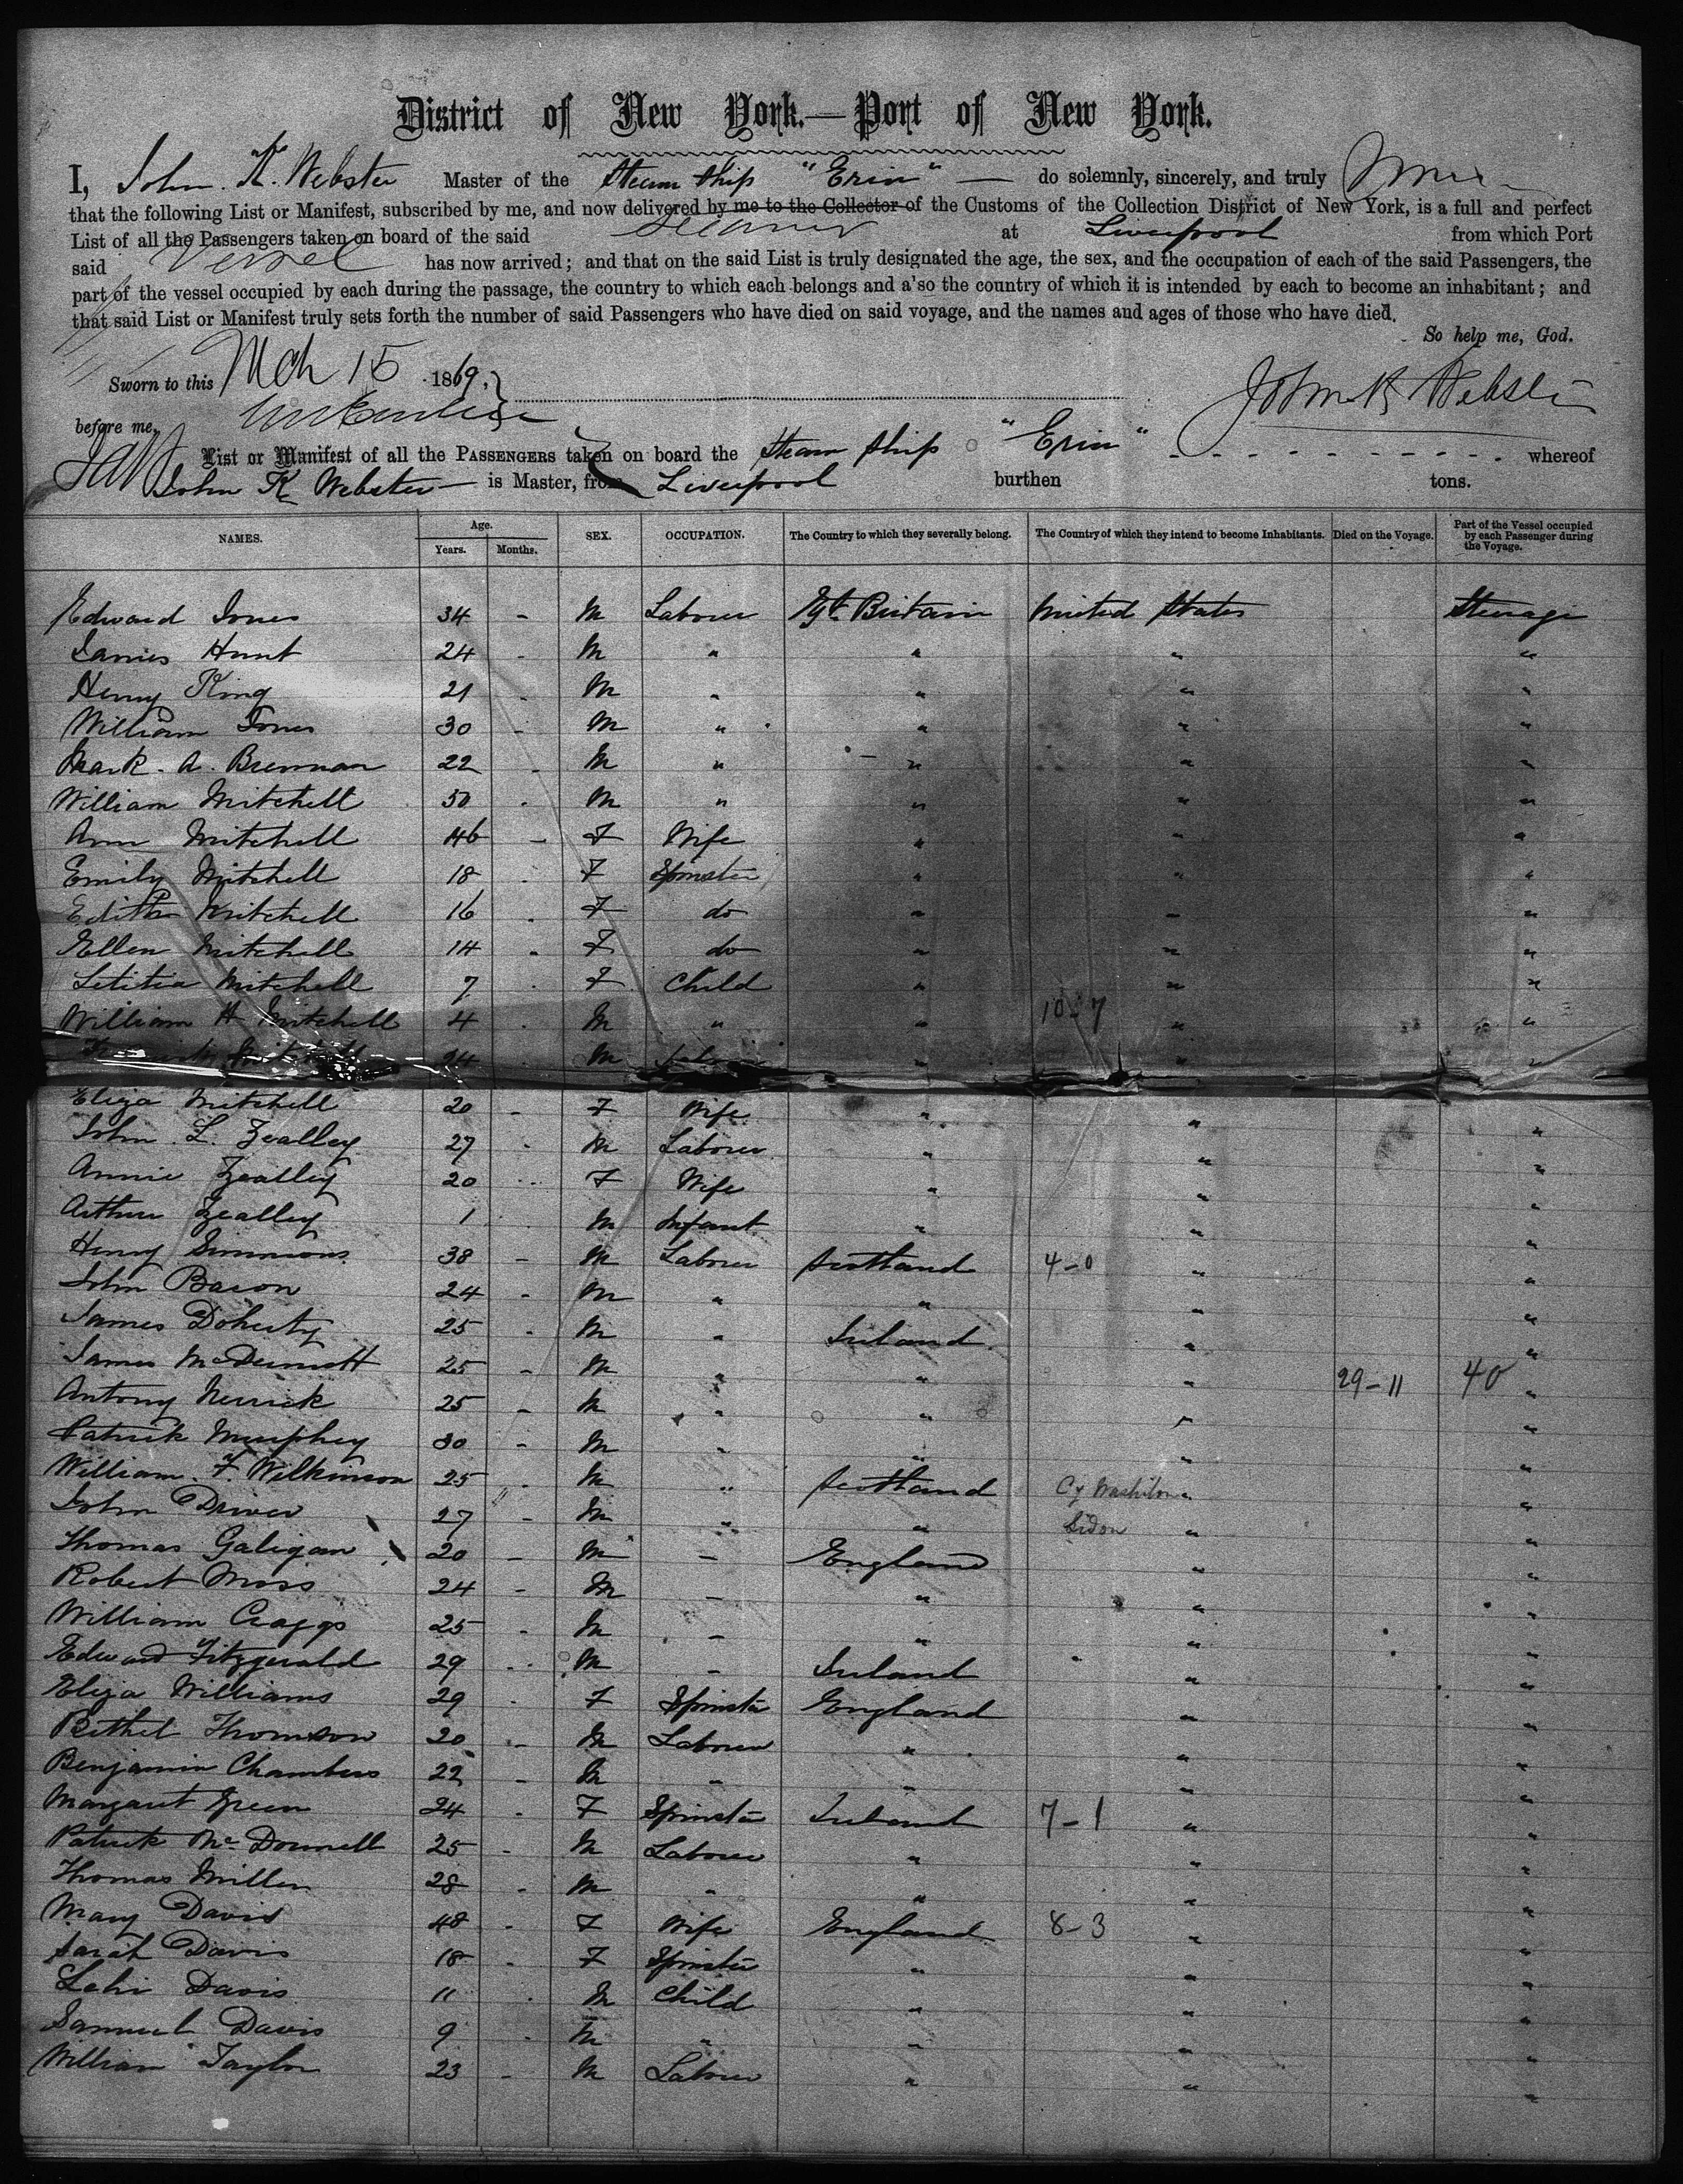 District of New York.—Port of New York.
I, John. K. Webster Master of the Steam Ship "Erin" — do solemnly, sincerely, and truly
that the following List or Manifest, subscribed by me, and now delivered by me to the Collector of the Customs of the Collection District of New York, is a full and perfect
List of all the Passengers taken on board of the said Steamer at Liverpool from which Port
said Vessel has now arrived; and that on the said List is truly designated the age, the sex, and the occupation of each of the said Passengers, the
part of the vessel occupied by each during the passage, the country to which each belongs and also the country of which it is intended by each to become an inhabitant; and
that said List or Manifest truly sets forth the number of said Passengers who have died on said voyage, and the names and ages of those who have died.
So help me, God.
Sworn to this Mch 15 1869.
John K Webster
before me,
List or Manifest of all the PASSENGERS taken on board the Steam Ship "Erin" whereof
John K Webster — is Master, from Liverpool burthen tons.
NAMES. Age. Years. Months. SEX. OCCUPATION. The Country to which they severally belong. The Country of which they intend to become Inhabitants. Died on the Voyage. Part of the Vessel occupied by each Passenger during the Voyage.
Edward Jones 34 - M Laborer Gt. Britain United States Steerage
James Hunt 24 - M " " " "
Henry King 21 - M " " " "
William Jones 30 - M " " " "
Mark. A. Brennan 22 - M " " " "
William Mitchell 50 - M " " " "
Ann Mitchell 46 - F Wife " " "
Emily Mitchell 18 - F Spinster " " "
Edith Mitchell 16 - F do " " "
Ellen Mitchell 14 - F do " " "
Letitia Mitchell 7 - F Child " " "
William H Mitchell 4 - M " " 10-7 " "
Mitchell 24 M " " "
Eliza Mitchell 20 - F Wife " " "
John. L. Zealley 27 - M Laborer " " "
Annie Zealley 20 - F Wife " " "
Arthur Zealley 1 - M Infant " " "
Henry Simmons 38 - M Laborer Scotland 4-0 " "
John Bacon 24 - M " " " "
James Doherty 25 - M " Ireland " "
James McDermott 25 - M " " " 29-11 40 "
Antony Nerrick 25 - M " " " "
Patrick Murphey 30 - M " " " "
William. F. Wilkinson 25 - M " Scotland Cy Washiton " "
John Driver 27 - M " " Sidon " "
Thomas Galigan 20 - M - England " "
Robert Moss 24 - M - " " "
William Craggs 25 - M - " " "
Edward Fitzgerald 29 - M - Ireland " "
Eliza Williams 29 - F Spinster England " "
Bethel Thomson 20 - M Laborer " " "
Benjamin Chambers 22 - M " " " "
Margaret Green 24 - F Spinster Ireland 7-1 " "
Patrick McDonnell 25 - M Laborer " " "
Thomas Miller 28 - M " " " "
Mary Davis 48 - F Wife England 8-3 " "
Sarah Davis 18 - F Spinster " " "
Lehi Davis 11 - M Child " " "
Samuel Davis 9 - M " " " "
William Taylor 23 - M Laborer " " "